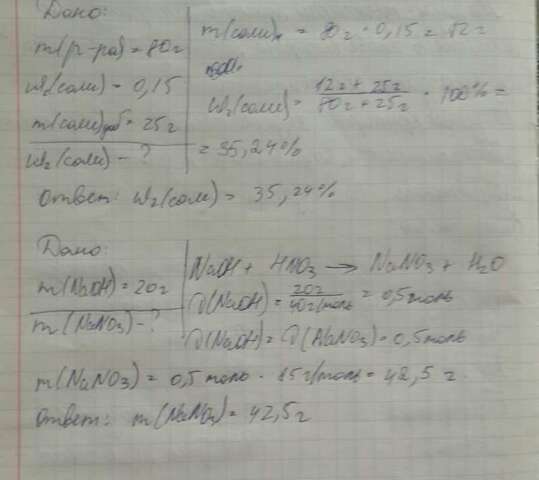 Дано:
m(р-ра) = 80г
w₁(соли) = 0,15
m(соли)доб = 25г
w₂(соли) - ?
m(соли) = 80г · 0,15 = 12г
w₂(соли) = 12г + 25г / 80г + 25г · 100% =
= 35,24%
Ответ: w₂(соли) = 35,24%
Дано:
m(NaOH) = 20г
m(NaNO₃) - ?
NaOH + HNO₃ → NaNO₃ + H₂O
ν(NaOH) = 20г / 40г/моль = 0,5моль
ν(NaOH) = ν(NaNO₃) = 0,5моль
m(NaNO₃) = 0,5 моль · 85г/моль = 42,5 г.
Ответ: m(NaNO₃) = 42,5г